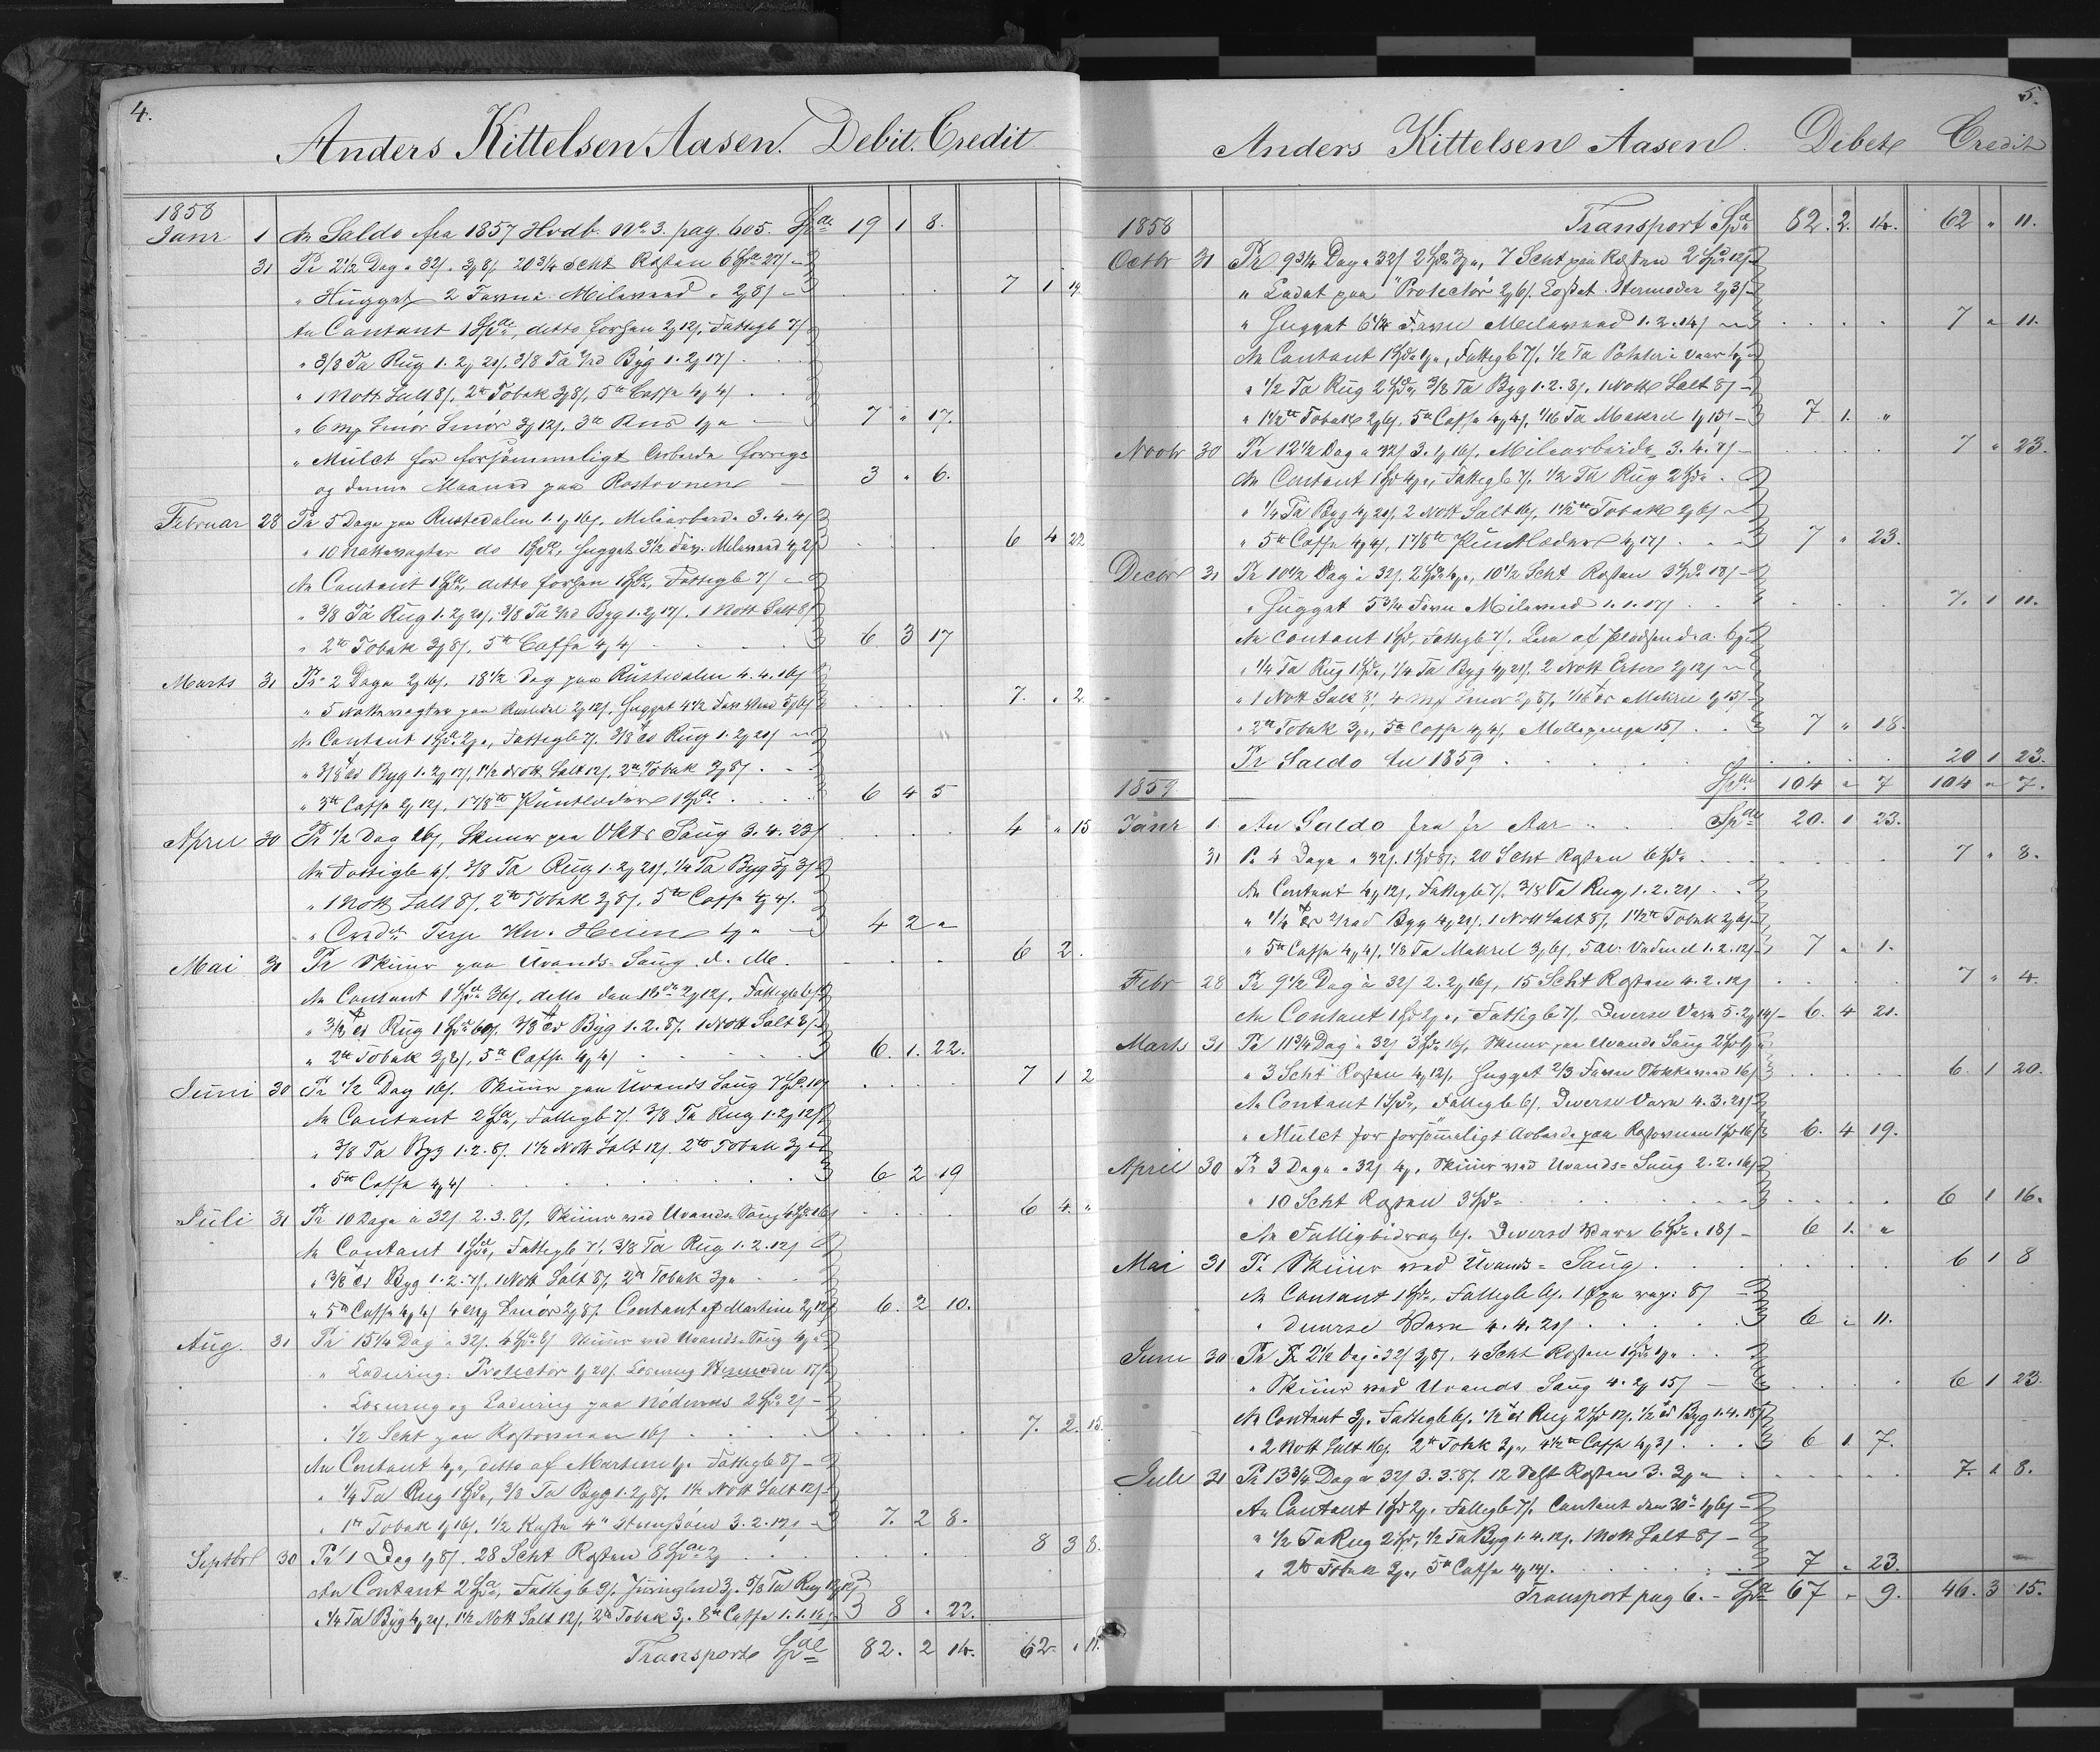 4.
Anders Kittelsen Aasen. Debit. Credit
1858
Janr 1 An Saldo fra 1857 Hvdb. No 3. pag. 605. Spd 19 1 8.
31 Pr 2½ Dag a 32/ . 3 8/. 20¾ Scht Rosten 6 Spd 27/
" Hugget 2 Favne Milaved 2 8/ 7 1 19
An Contant 1 Spd, ditto Forhen 2 12/. Fattigb 7/
" 3/8 Ta Rug 1. 2 20/, 3/8 Ta Byg 1. 2 17/.
" 1 Nott Salt 8/, 2 Tobak 3 8/, 5 Caffe 4 4/
" 6 Smör Smör 3 12/. 3 7 " 17.
" Mulct for forsömmeligt Arbeide forrige
og denne Maaned paa Rostovnen 3 " 6.
Februar 28 Pr 5 Dage paa Rustedalen 1. 1 16/, Milaarbeide 3. 4. 4/
" 10 Nattevagter do 1 Spd, Hugget 3½ Fav. Milaved 4 2/ 6 4 22
An Contant 1 Spd, ditto forhen 1 Spd, Fattigb 7/
" 3/8 Ta Rug 1. 2 20/, 3/8 Ta Byg 1. 2 17/. 1 Nott Salt 8/
" 2 Tobak 3 8/, 5 Caffe 4 4/ 6 3 17
Marts 31 Pr 2 Dage 2 16/. 18½ Dag paa Rustedalen 4. 4. 16/
" 5 Nattevagter paa Rustedal 2 12/. Hugget 4½ Favn 7. " 2
An Contant 1 Spd 2, Fattigb 7/. 3/8 Rug 1. 2 20/
" 3/8 Byg 1. 2 17/, 1½ Nott Salt 12/, 2 Tobak 3 8/
" 3 Caffe 2 12/, 17/8 Puntlæder 1 Spd 6 4 5
April 30 Pr ½ Dag 16/, Skuur paa Saug 3. 4. 23/ 4 " 15
An Fattigb 4/, 3/8 Ta Rug 1. 2 20/, ¼ Ta Byg 3/
" 1 Nott Salt 8/. 2 Tobak 3 8/. 5 Caffe 4 4/.
" Credit Terje Heien 4 2 "
Mai 31 Pr Skuur paa Uvands-Saug d. Me. 6 2.
An Contant 1 Spd 36/, ditto den 16 2 12/. Fattigb 6/
" 3/8 Rug 1 Spd 60/, 3/8 Byg 1. 2. 8/. 1 Nott Salt 8/
" 2 Tobak 3 8/, 5 Caffe 4 4/ 6. 1. 22.
Juni 30 Pr ½ Dag 16/. Skuur paa Uvands Saug 7 Spd 10/ 7 1 2
An Contant 2 Spd, Fattigb 7/. 3/8 Ta Rug 1. 2 12/
" 3/8 Ta Byg 1. 2. 8/. 1½ Nott Salt 12/. 2 Tobak 3
" 5 Caffe 4 4/ 6 2 19
Juli 31 Pr 10 Dage a 32/ 2. 3. 8/, Skuur ved Uvands-Saug 4 Spd 16/ 6 4. "
An Contant 1 Spd, Fattigb 7/. 3/8 Ta Rug 1. 2. 12/
" 3/8 Byg 1. 2. 7/, 1 Nott Salt 8/ 2 Tobak 3
" 5 Caffe 4 4/ 4 Smör 2 8/. Contant af Martine 2 12/ 6. 2 10.
Aug. 31 Pr 15¼ Dag a 32/. 4 Spd 8/ Skuur ved Uvands-Saug 4
" Ladning: Protector 1 20/. Losning Hermoder 17/
" Losning og Ladning paa Nödenes 2 Spd 2/
" ½ Scht paa Rostovnen 16/ 7. 2. 15.
An Contant 4, ditto af Martine 1. Fattigb 8/
" ¼ Ta Rug 1 Spd, 3/8 Ta Byg 1. 2 8/. 1½ Nott Salt 12/
" 1 Tobak 1 16/. ½ Kasse 4" 3. 2. 17. 7. 2 8.
Septbr 30 Pr 1 Dag 1 8/. 28 Scht Rosten 8 Spd 2 8 3 8.
An Contant 2 Spd, Fattigb 9/. 3. 5/8 Ta Rug
" ¼ Ta Byg 4 20/. 1½ Nott Salt 12/. 2 Tobak 3. 8 Caffe 1. 1. 16/ 8 . 22.
Transport Spd 82. 2 14. 62. " 11.
5.
Anders Kittelsen Aasen. Debet Credit
1858 Transport Spd 82. 2. 14. 62 " 11.
Octbr 31 Pr 9¾ Dag a 32/ 2 Spd 3, 7 Scht paa Rosten 2 Spd 12/
" Ladat paa "Protector" 2 6/. Losset Hermoder 2 3/
" Hugget 6¼ Favn Milaved 1. 2. 14/ 7 " 11.
An Contant 1 Spd 1, Fattigb 7/. ½ Ta Poteter
" ½ Ta Rug 2 Spd, 3/8 Ta Byg 1. 2. 8/. 1 Nott Salt 8/
" 1½ Tobak 2 6/, 5 Caffe 4 4/, 1/16 Ta Makrel 1 15/ 7 1. "
Novbr 30 Pr 12½ Dag a 32/ 3. 1 16/. Milaarbeide 3. 4. 7/ 7 " 23.
An Contant 1 Spd 4, Fattigb 7/. ½ Ta Rug 2 Spd
" ¼ Ta Byg 4 20/. 2 Nott Salt 16/, 1½ Tobak 2 6/
" 5 Caffe 4 4/, 17/8 Puntlæder 4 17/ 7 " 23.
Decbr 31 Pr 10½ Dag a 32/. 2 Spd 4, 10½ Scht Rosten 3 Spd 18/
" Hugget 5¾ Favn Milaved 1. 1. 17/ 7. 1 11.
An Contant 1 Spd, Fattigb 7/.
" ¼ Ta Rug 1 Spd, ¼ Ta Byg 4 20/. 2 Nott Erter 2 12/
" 1 Nott Salt 8/, 4 Smör 2 8/, 1/16 Makrel 1 15/
" 2 Tobak 3, 5 Caffe 4 4/, Mollepenge 15/ 7 " 18.
Pr Saldo til 1859 20 1 23.
1859 Spd 104 " 7 104 " 7.
Janr 1 An Saldo fra fr Aar Spd 20. 1 23.
31 Pr 4 Dage a 32/. 1 Spd 8/; 20 Scht Rosten 6 Spd 7 " 8.
An Contant 4 12/, Fattigb 7/. 3/8 Ta Rug 1. 2. 20/
" ¼ Byg 4 20/. 1 Nott Salt 8/. 1½ Tobak 2 6/
" 5 Caffe 4 4/. 1/8 Ta Makrel 3 6/, 5 Al: Vadmel 1. 2. 12/ 7 " 1.
Febr 28 Pr 9½ Dag a 32/ 2. 2 16/, 15 Scht Rosten 4. 2. 12/ 7 " 4.
An Contant 1 Spd 2, Fattigb 7/. Diverse Vare 5. 2 14/ 6. 4 21.
Marts 31 Pr 11¾ Dag a 32/ 3 Spd 16/, Skuur paa Uvands Saug 2 Spd
" 3 Scht Rosten 4 12/. Hugget 2/3 Favn 16/ 6. 1 20.
An Contant 1 Spd, Fattigb 6/, Diverse Vare 4. 3. 21/
" Mulct for forsömmeligt Arbeide paa Rostovnen 1 Spd 16/ 6. 4 19.
April 30 Pr 3 Dage a 32/ 4, Skuur ved Uvands-Saug 2. 2. 16/
" 10 Scht Rosten 3 Spd 6 1 16.
An Fattigbidrag 6/. Diverse Vare 6 Spd 18/ 6 1. "
Mai 31 Pr Skuur ved Uvands-Saug 6 1 8
An Contant 1 Spd, Fattigb 6/. 1 Öxe 8/
" diverse Vare 4. 4. 21/ 6 " 11.
Juni 30 Pr 2½ Dag a 32/ 3 8/. 4 Scht Rosten 1 Spd 1
" Skuur ved Uvands Saug 4. 2 15/ 6 1 23.
An Contant 3. Fattigb 6/. ½ Rug 2 Spd 12/. ½ Byg 1. 4. 18/
" 2 Nott Salt 16/. 2 Tobak 3, 4½ Caffe 4 3/ 6 1. 7.
Juli 31 Pr 13¾ Dag a 32/ 3. 3. 8/. 12 Scht Rosten 3. 3 " 7. " 8.
An Contant 1 Spd 2. Fattigb 7/. Contant den 30 1 6/
" ½ Ta Rug 2 Spd, ½ Ta Byg 1. 4. 12/. 1 Nott Salt 8/
" 2 Tobak 3, 5 Caffe 4 14/. 7 " 23.
Transport pag 6. Spd 67 " 9. 46. 3 15.